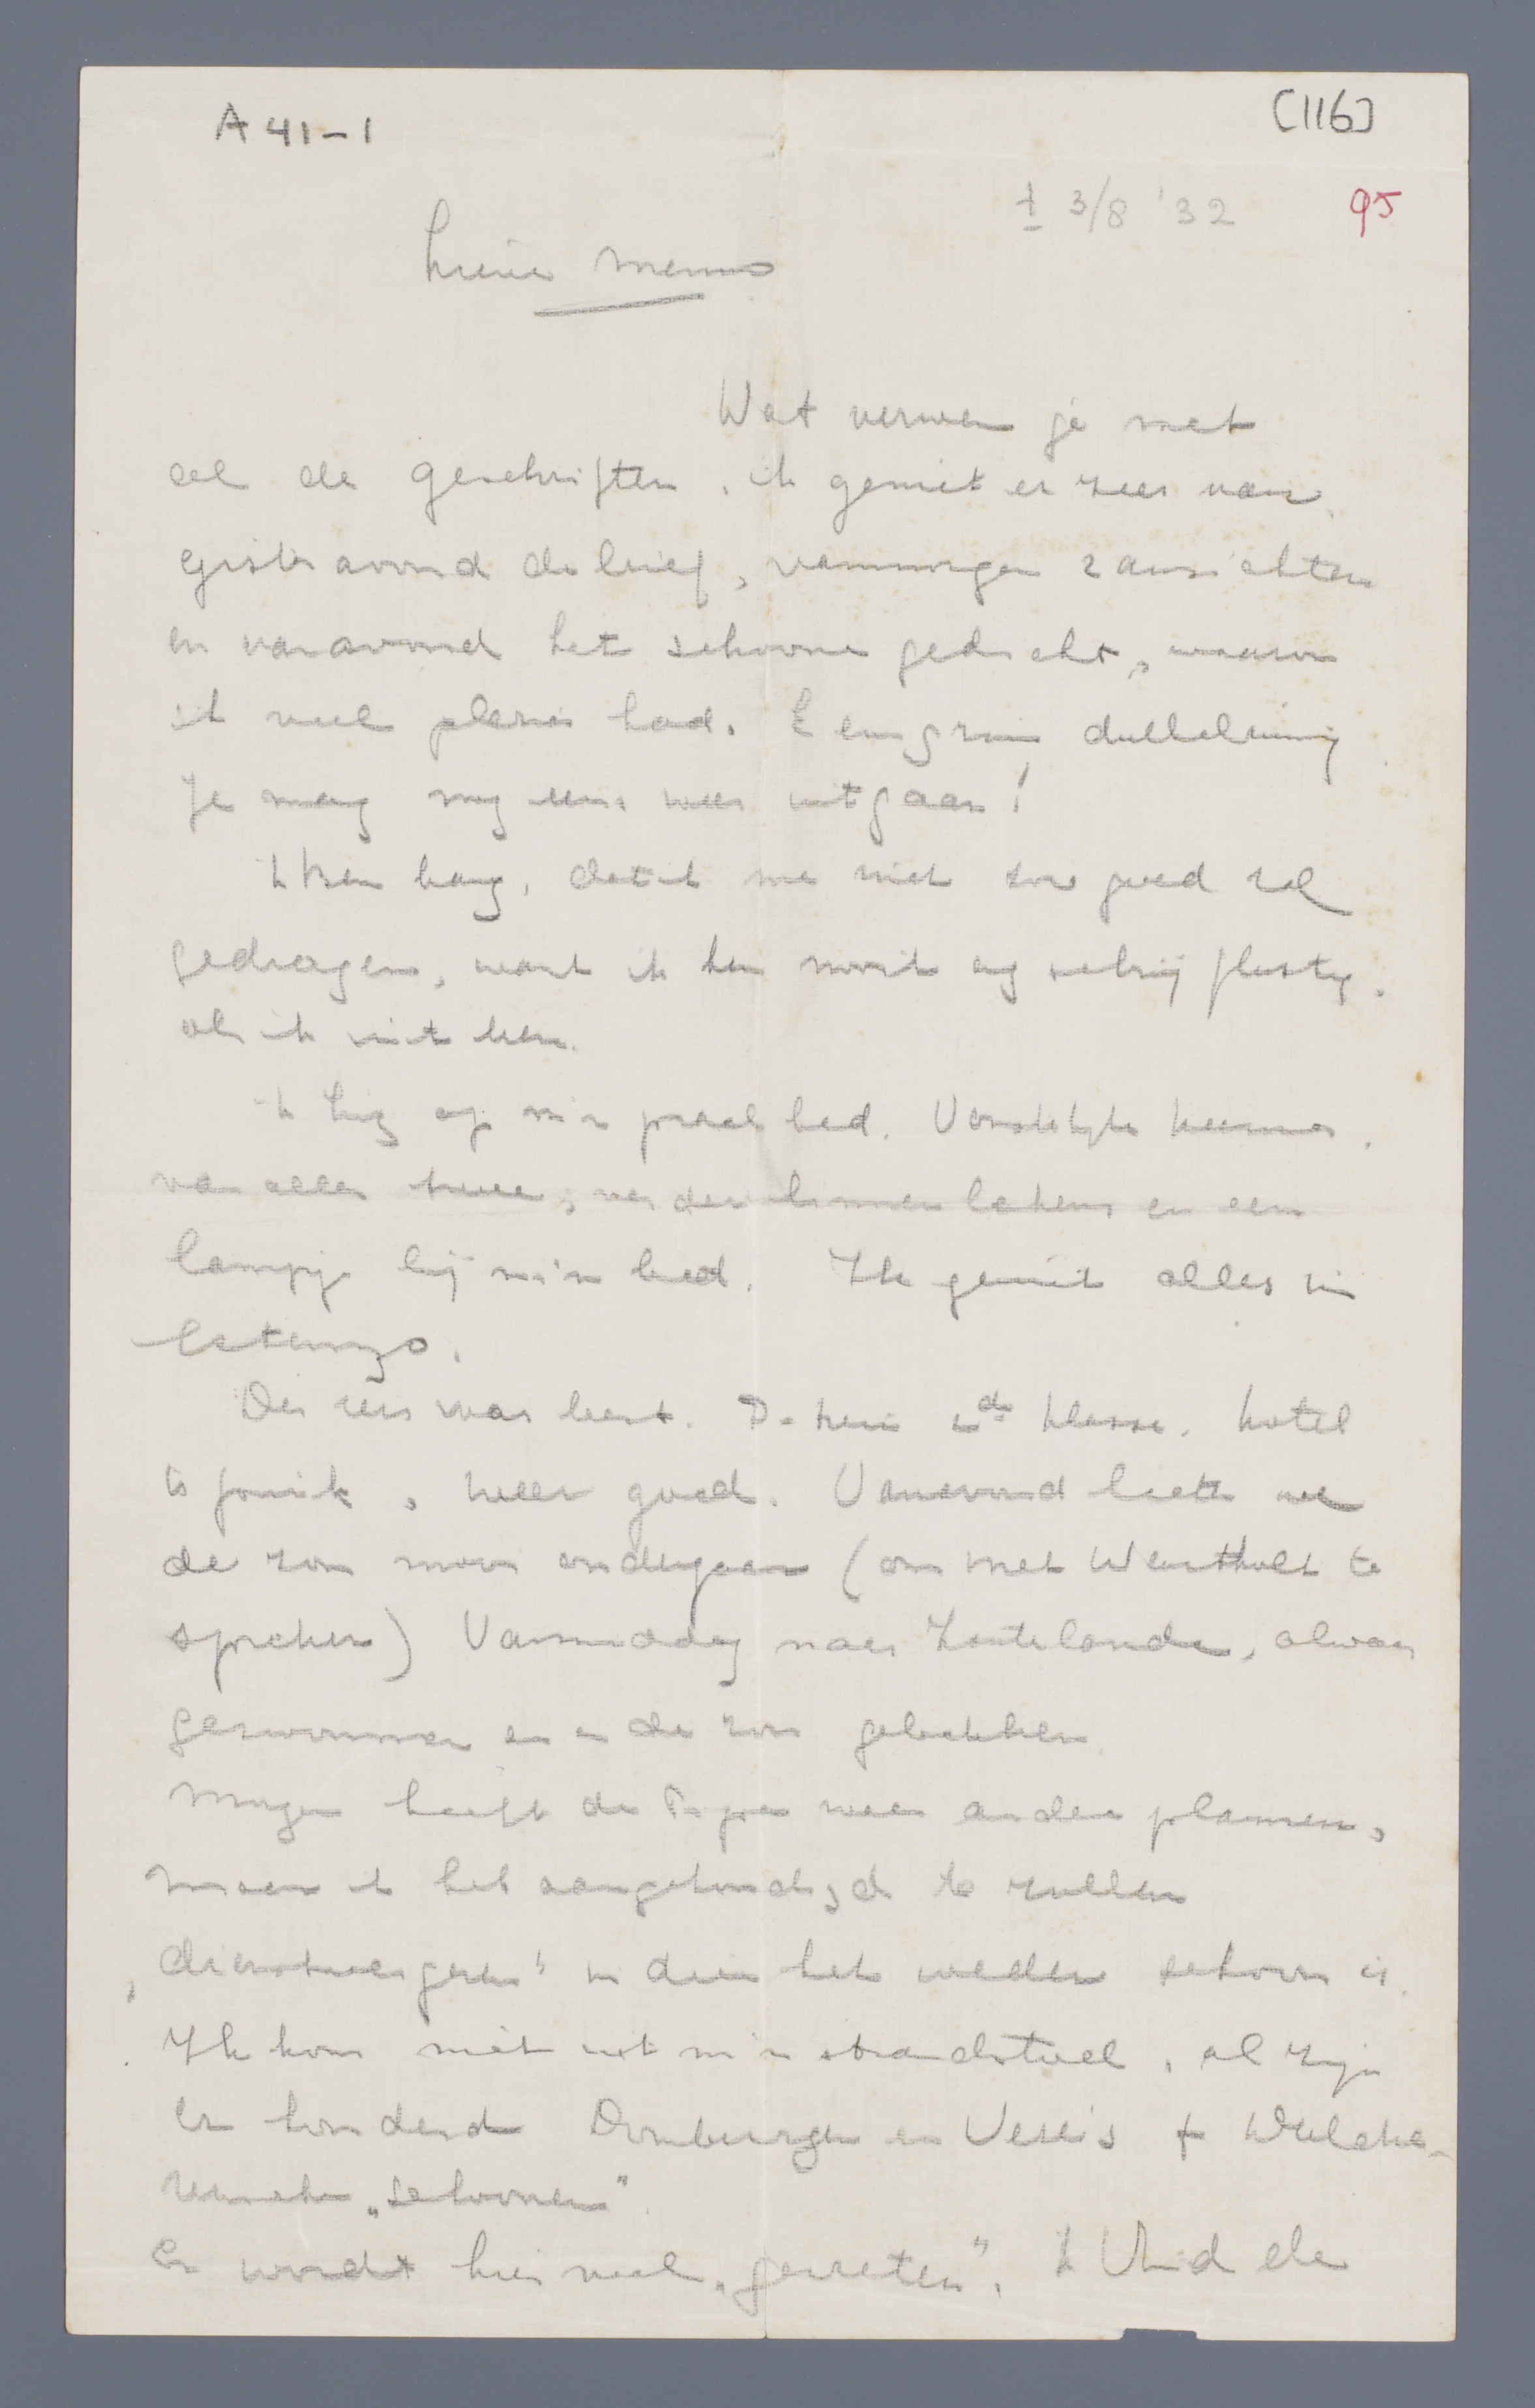 A 41-1
[116]
± 3/8 '32
95
Lieve Menno
Wat verwen je met
al de geschriften, ik geniet er zeer van.
gisteravond de brief, vanmorgen 2 ansichten
en vanavond het schoone gedicht, waarvan
ik veel plezier had. dubbelzinnig
Je mag nog eens weer uitgaan!
Ik ben bang, dat ik me niet zoo goed zal
gedragen, want ik ben nooit erg schrijflustig.
als ik uit ben.
Ik lig op m'n praalbed. Vorstelijke kamer.
van alles twee, verder linnen lakens en een
lampje bij m'n bed. Ik geniet alles in
extenso.
De reis was best. De trein 2de klasse. hotel
is fonik, weer goed. Vanavond liette we
de zon mooi ondergaan (om met Wersthoelt te
spreken) Vanmiddag naar Zoutelande, alwaar
gezwommen en in de zon gebakken.
Morgen heeft de Papa weer andere plannen,
maar ik heb aangekondigd te zullen
„dienstweigeren" indien het weder schoon is.
Ik kom niet uit m'n strandstoel, al zijn
er honderd Domburgen en Veere's + Walche-
rensche „schoonen".
Er wordt hier veel „gezeten". Ik vind de